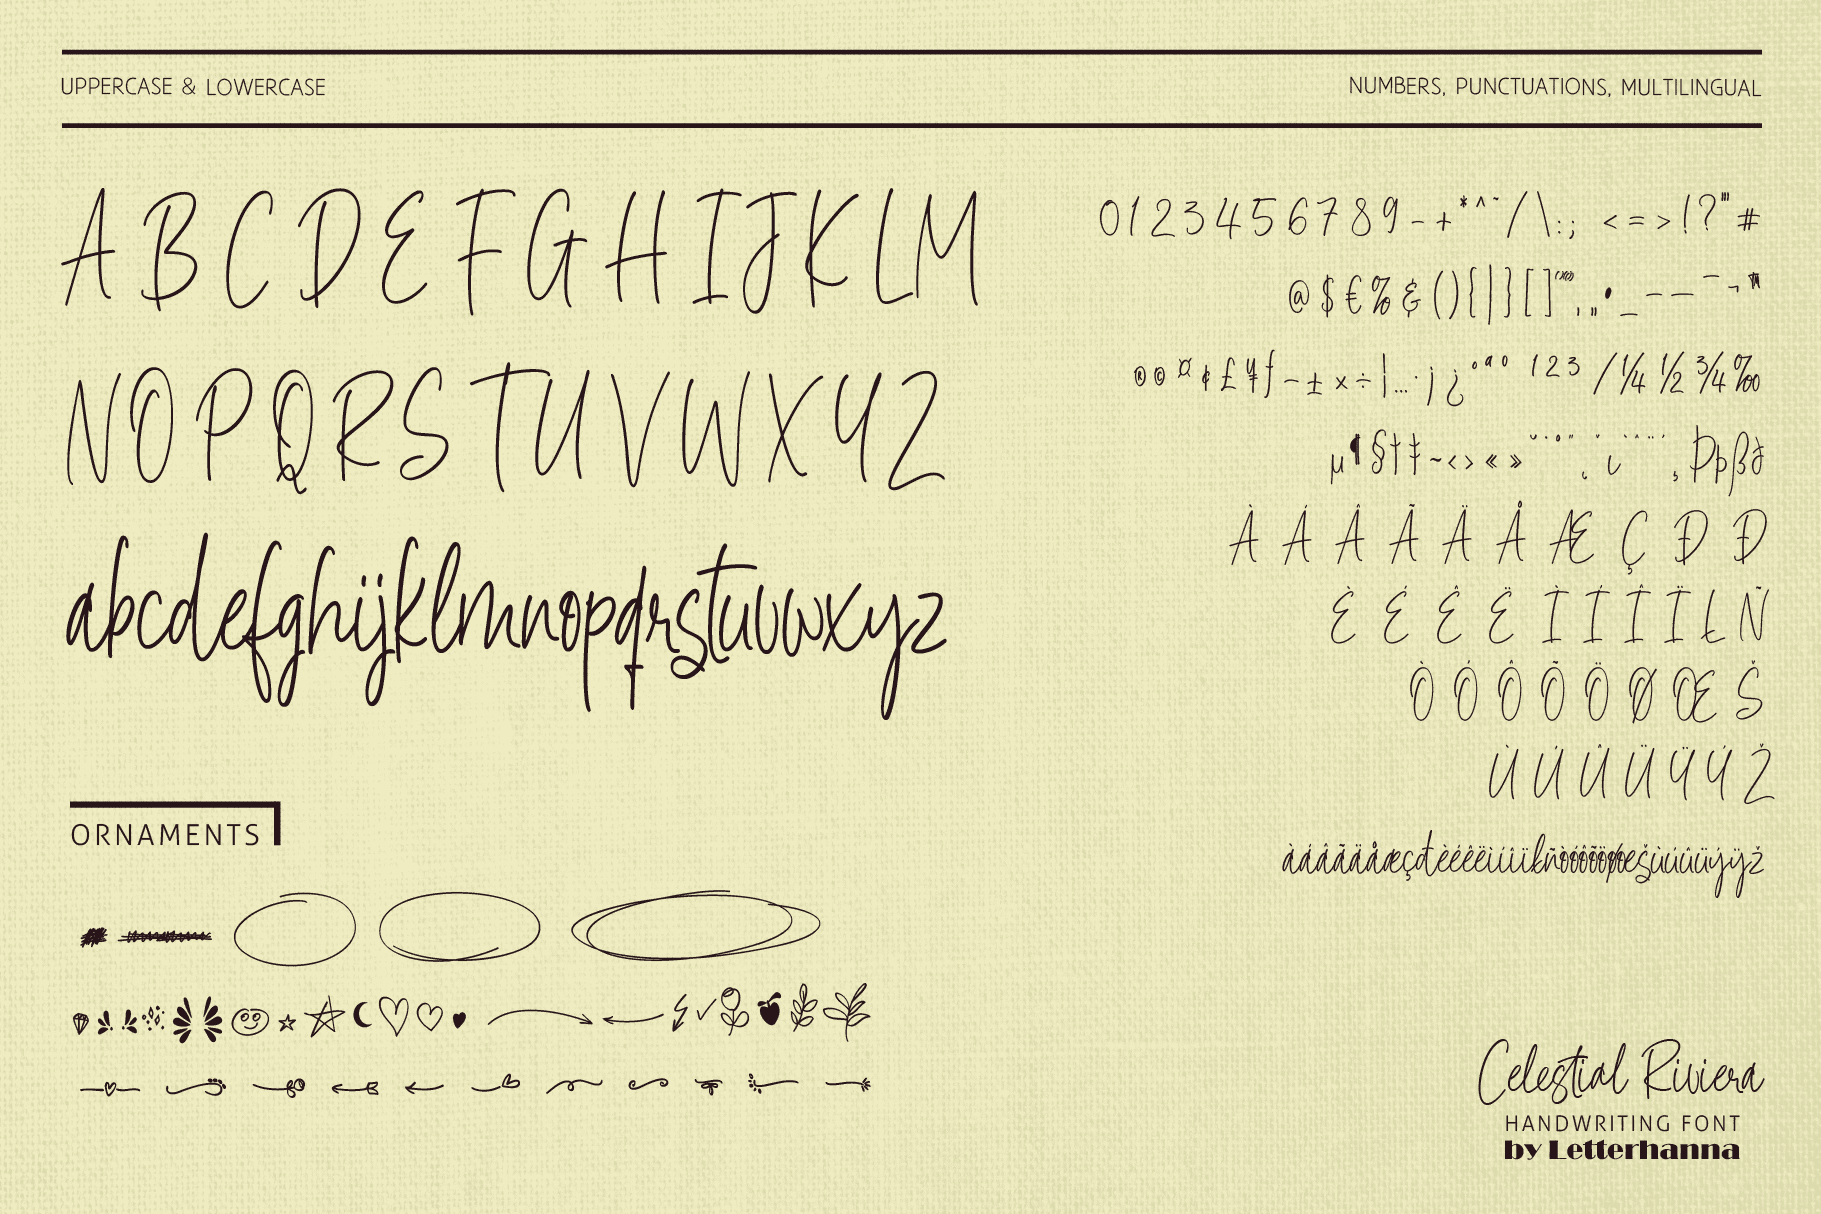 UPPERCASE & LOWERCASE
NUMBERS, PUNCTUATIONS, MULTILINGUAL
ABCDEFGHIJKLM
NOPQRSTUVWXYZ
abcdefghijklmnopqrstuvwxyz
0123456789-+*^~/\:; <=>!?"'#
@$€%&(){|}[]
®©¤¢£¥ƒ−±×÷|…·¡¿°ªº 123 /¼½¾‰
µ¶§†‡~‹›«»
ÞþßÀ
À Á Â Ã Ä Å Æ Ç Ð Đ
È É Ê Ë Ì Í Î Ï Ł Ñ
Ò Ó Ô Õ Ö Ø Œ Š
Ù Ú Û Ü Ÿ Ý Ž
àáâãäåæçđèéêëìíîïłñòóôõöøœšùúûüýÿž
ORNAMENTS
Celestial Riviera
HANDWRITING FONT
by Letterhanna